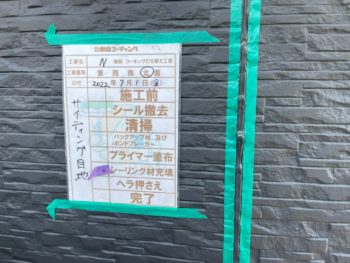 工事名 N 様邸 コーキング打ち替え工事
工事箇所 東 西 南 北 面
日付 2022年7月1日
サイディング目地
施工前
シール撤去
清掃
バックアップ材 及び
ボンドブレーカー
プライマー塗布
シーリング材充填
ヘラ押さえ
完了